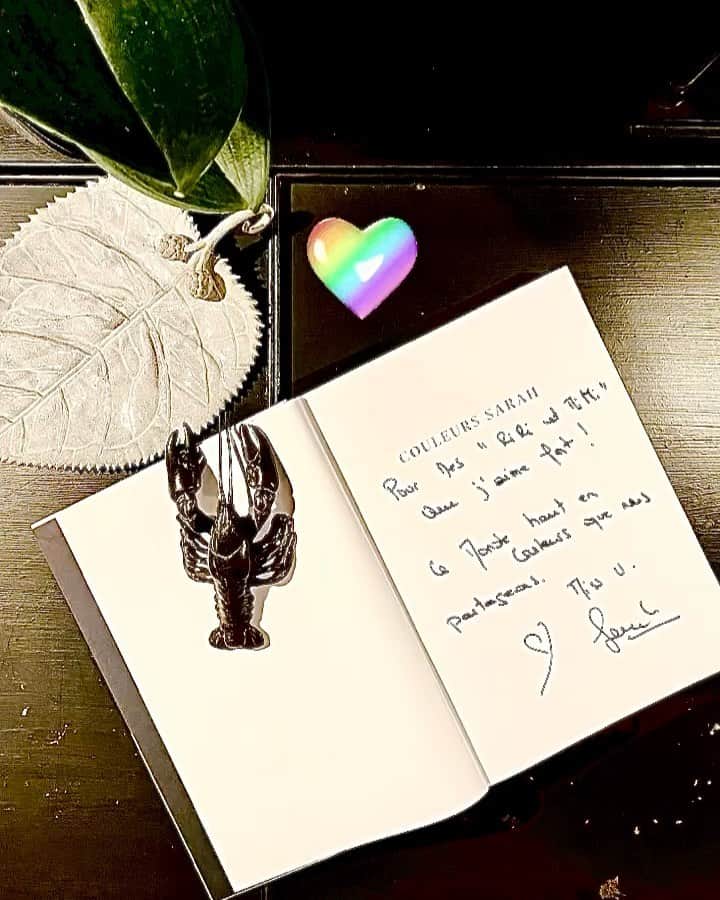 COULEURS SARAH
Pour les "RiRi et M.M."
que j'aime fort !
Ce Monde haut en
Couleurs que nous
partageons. Miss U.